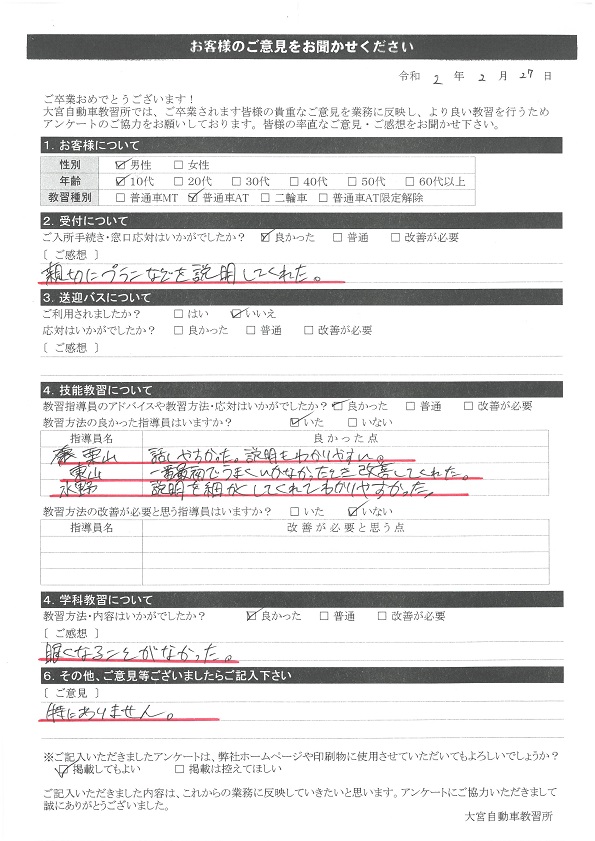 お客様のご意見をお聞かせください
令和 2 年 2 月 27 日
ご卒業おめでとうございます！
大宮自動車教習所では、ご卒業されます皆様の貴重なご意見を業務に反映し、より良い教習を行うため
アンケートのご協力をお願いしております。皆様の率直なご意見・ご感想をお聞かせ下さい。
1. お客様について
性別 ☑男性 □女性
年齢 ☑10代 □20代 □30代 □40代 □50代 □60代以上
教習種別 □普通車MT ☑普通車AT □二輪車 □普通車AT限定解除
2. 受付について
ご入所手続き・窓口応対はいかがでしたか？ ☑良かった □普通 □改善が必要
［ ご感想 ］
親切にプランなどを説明してくれた。
3. 送迎バスについて
ご利用されましたか？ □はい ☑いいえ
応対はいかがでしたか？ □良かった □普通 □改善が必要
［ ご感想 ］
4. 技能教習について
教習指導員のアドバイスや教習方法・応対はいかがでしたか？ ☑良かった □普通 □改善が必要
教習方法の良かった指導員はいますか？ ☑いた □いない
指導員名 良かった点
栗山 話しやすかった。説明もわかりやすい。
東山 一番最初でうまくいかなかった所を改善してくれた。
水野 説明を細かくしてくれてわかりやすかった。
教習方法の改善が必要と思う指導員はいますか？ □いた ☑いない
指導員名 改善が必要と思う点
4. 学科教習について
教習方法・内容はいかがでしたか？ ☑良かった □普通 □改善が必要
［ ご感想 ］
眠くなることがなかった。
6. その他、ご意見等ございましたらご記入下さい
［ ご意見 ］
特にありません。
※ご記入いただきましたアンケートは、弊社ホームページや印刷物に使用させていただいてもよろしいでしょうか？
☑掲載してもよい □掲載は控えてほしい
ご記入いただきました内容は、これからの業務に反映していきたいと思います。アンケートにご協力いただきまして
誠にありがとうございました。
大宮自動車教習所